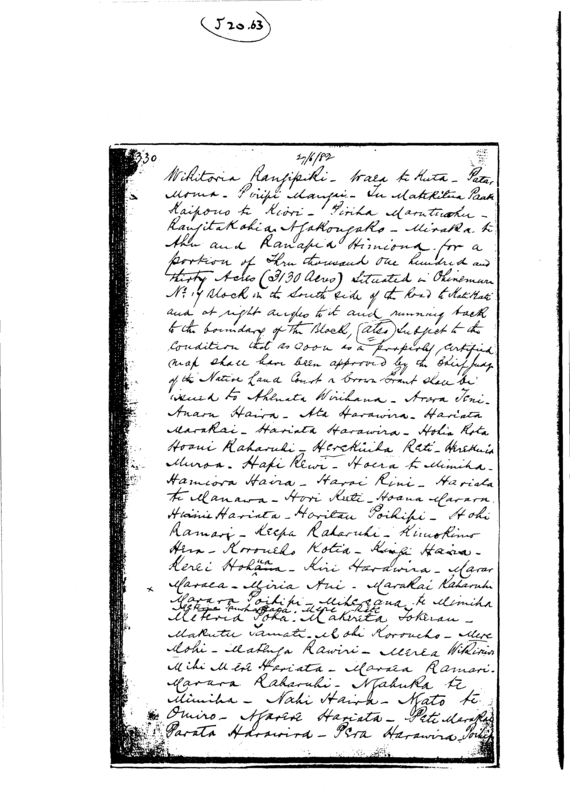 J 20.63
330
2/6/82
Wikitoria Rangipiki - Waea te Kuta - Peta
Moma - Piripi Mangai - Tu Matikitua Paak
Kaipouo te Kiori - Piriha Marutuahu -
Rangitakohia Ngakongako - Miraka te
Ahu and Ranapia Himiona for a
portion of Three thousand One hundred and
thirty Acres (3130 acres) Situated in Ohinemuri
No. 17 Block in the South side of the Road to Kati Kati
and at right angles to it and running back
to the boundary of the Block, (also) Subject to the
condition that as soon as a properly certified
map shall have been approved by the Chief Judg
of the Native Land Court a Crown Grant shall be
issued to Ahenata Wirihana - Arera Teni -
Anaru Haira - Ata Harawira - Hariata
Marakai - Hariata Harawira - Hohia Rota
Hoani Raharuhi - Herekiuha Rati - Herekiuia
Muroa - Hapi Rewi - Hoera te Mimiha -
Hamiora Haira - Harai Rini - Hariata
te Manawa - Hori Kuti - Hoana Marara
Hariata - Horitau Poihipi - Hohi
Ramari - Keepa Raharuhi - Kimokimo
Hera - Koroneho Kotia - Kingi Haira -
Kerei - Kiri Harawira - Marar
x Maraea - Miria Ani - Marakai Raharuhi
Marara Poihipi - te Mimiha
Toha - Makereta Tokerau -
Makutu - Mohi Koroneho - Mere
Mohi - Rawiri - Merea
Mihi Mere Hariata - Maraea Ramari -
Marara Raharuhi - Ngahuka te
Mimiha - Nahi Haira - Ngato te
Omiro - Ngarere Hariata - Peti Marakai
Parata Harawira - Pera Harawira Poihip